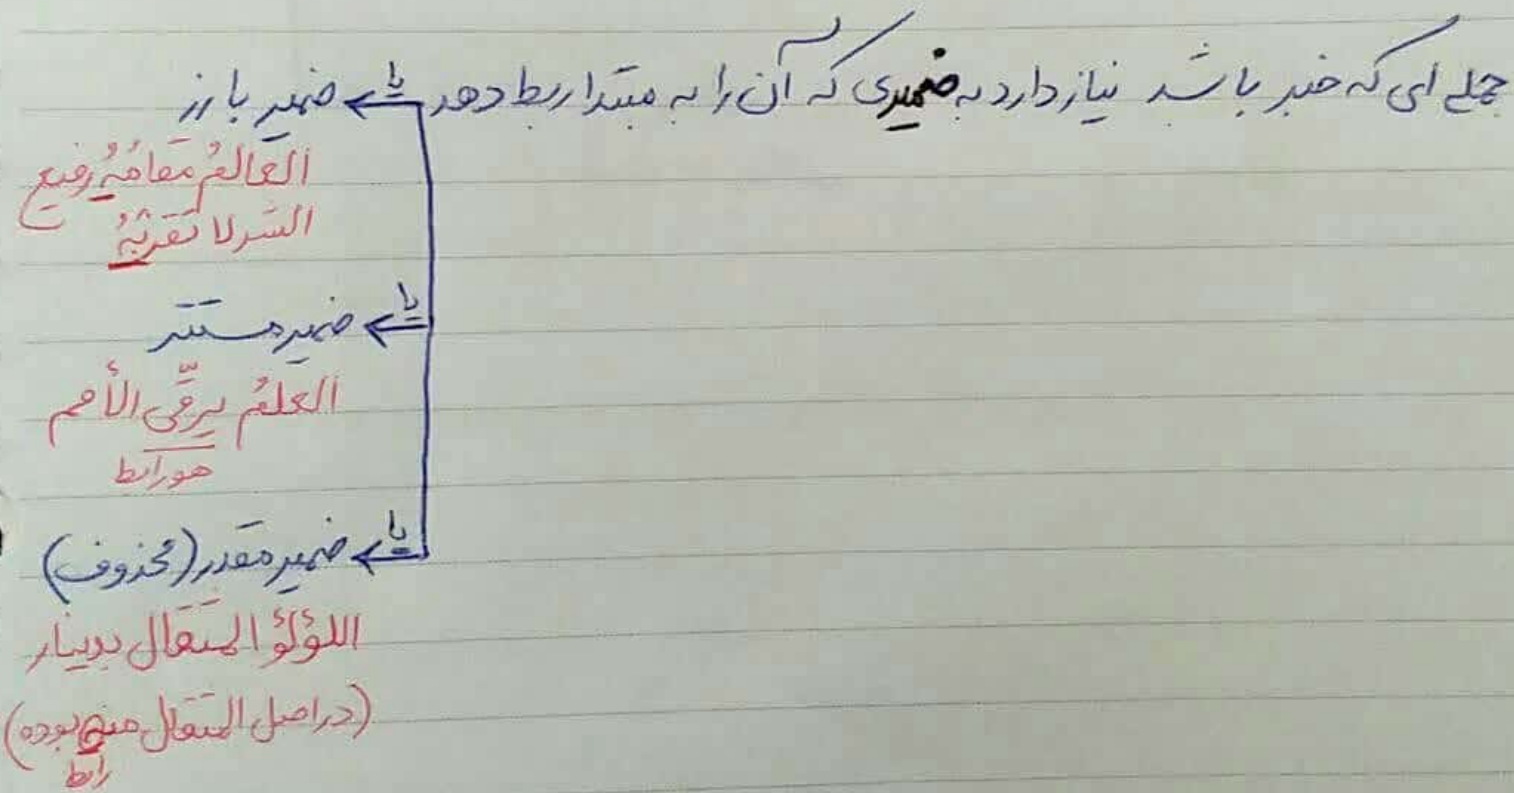 جمله ای که خبر باشد نیاز دارد به ضمیری که آن را به مبتدا ربط دهد
یا ضمیر بارز
العالمُ مَقامُهُ رفیع
الشر لا تَقرَبْهُ
یا ضمیر مستتر
العلمُ یرقّی الأمم
هو رابط
یا ضمیر مقدر (محذوف)
اللؤلؤ المثقال بدینار
(در اصل المثقال منه بوده)
رابط